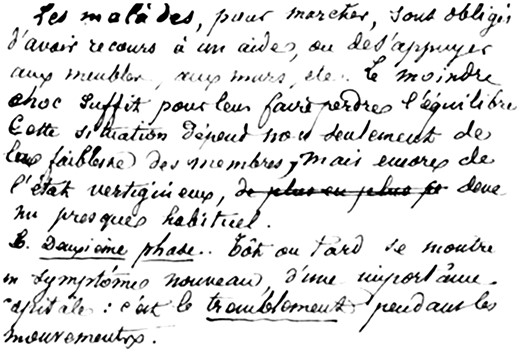 Les malades, pour marcher, sont obligés
d'avoir recours à un aide, ou de s'appuyer
aux meubles, aux murs, etc. Le moindre
choc suffit pour leur faire perdre l'équilibre
Cette situation dépend non seulement de
la faiblesse des membres, mais encore de
l'état vertigineux, de plus en plus deve
nu presque habituel.
B. Deuxième phase. Tôt ou tard se montre
un symptôme nouveau, d'une importance
capitale : c'est le tremblement pendant les
mouvements.